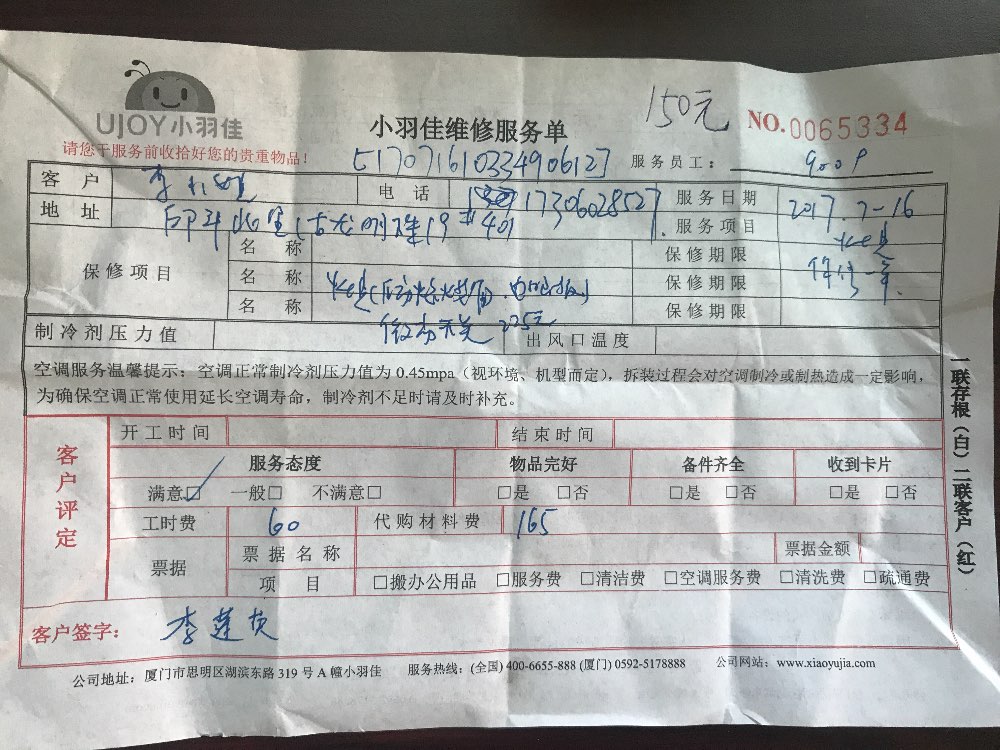 UJOY小羽佳
小羽佳维修服务单
150元
NO.0065334
请您于服务前收拾好您的贵重物品！
517071610334906127
服务员工：
9009
客户 李
电话 17306028527
服务日期 2017.7-16
地址 古龙明珠19#401
服务项目
保修项目
名称
保修期限
名称
保修期限 保修一年
名称
保修期限
微动开关 225元
制冷剂压力值
出风口温度
空调服务温馨提示：空调正常制冷剂压力值为 0.45mpa（视环境、机型而定），拆装过程会对空调制冷或制热造成一定影响，
为确保空调正常使用延长空调寿命，制冷剂不足时请及时补充。
客户评定
开工时间
结束时间
服务态度 物品完好 备件齐全 收到卡片
满意□ 一般□ 不满意□ □是 □否 □是 □否 □是 □否
工时费 60 代购材料费 165
票据
票据名称
票据金额
项目 □搬办公用品 □服务费 □清洁费 □空调服务费 □清洗费 □疏通费
客户签字： 李莲英
公司地址：厦门市思明区湖滨东路 319 号 A 幢小羽佳 服务热线：(全国) 400-6655-888 (厦门) 0592-5178888 公司网站：www.xiaoyujia.com
一联存根（白）二联客户（红）